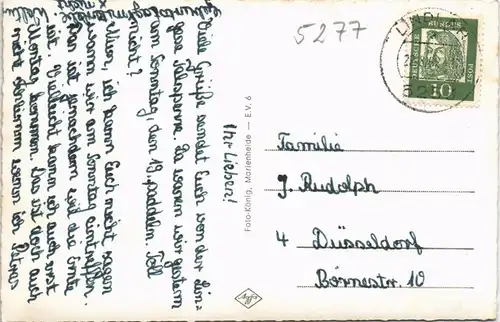 5277
LINDLAR
DEUTSCHE
BUNDES
POST
10
Ihr Lieben!
Viele Grüße sendet Euch von der Lin-
gese Talsperre. Da waren wir gestern
am Sonntag, den 19. paddeln. Toll
nicht?
Nun, ich kann Euch nicht sagen
wann wir am Sonntag eintreffen.
Das ist jenachdem weil die Ernte
ist. Vielleicht kann ich auch erst
Montag kommen. Das ist doch auch
nicht schlimm wenn ich Petras
Geburtstag
nicht
Foto-König, Marienheide — E.V. 6
Agfa
Familie
J. Rudolph
4 Düsseldorf
Börnestr. 10